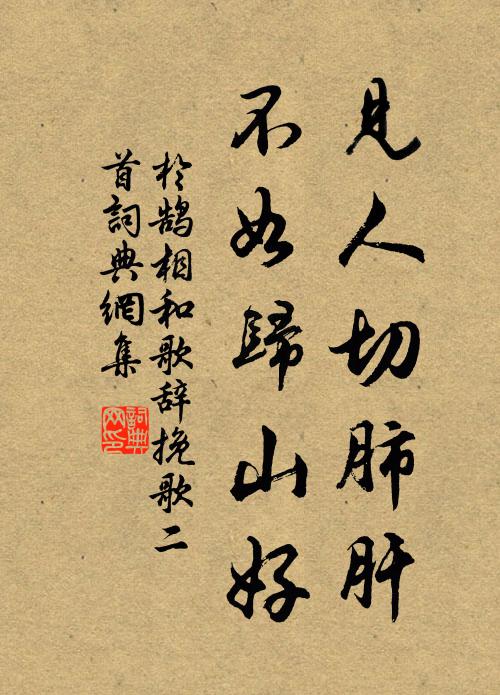 見人切肺肝
不如歸山好
於鵠相和歌辞挽歌二
首詞典網集
詞典
网印